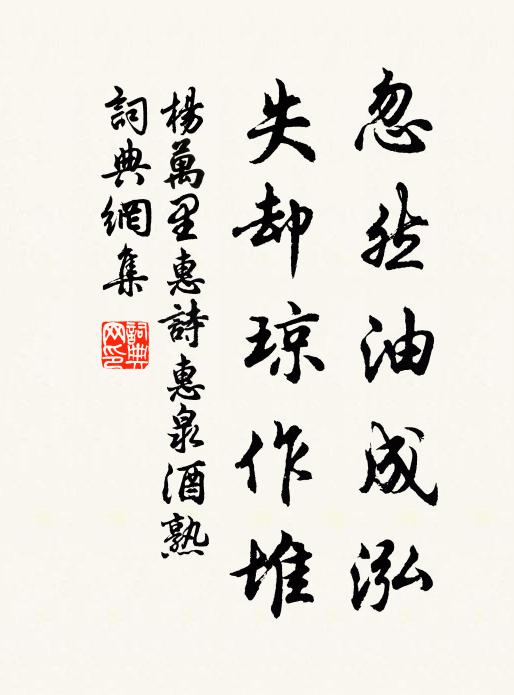 忽然油成泓
失却琼作堆
楊萬里惠詩惠泉酒熟
詞典網集
詞典网印